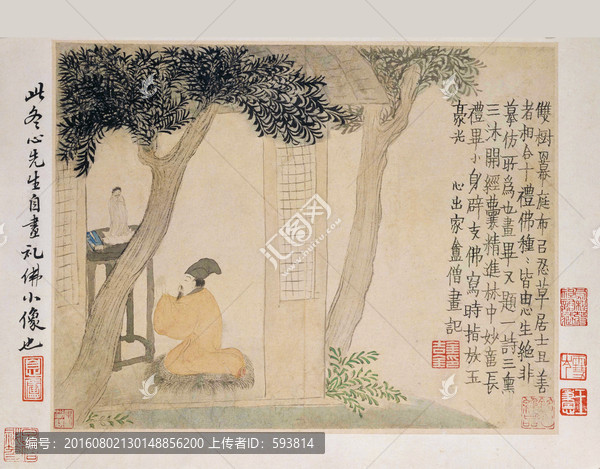 雙樹羃庭布㠯忍草居士且善
者相合十禮佛種種皆由心生絕非
摹仿所為也畫畢又題一詩三熏
三沐開經囊精進林中妙長
禮畢小身辟支佛寫時指放玉
豪光 心出家盦僧畫記
此冬心先生自畫礼佛小像也
编号：20160802130148856200 上传者ID：593814